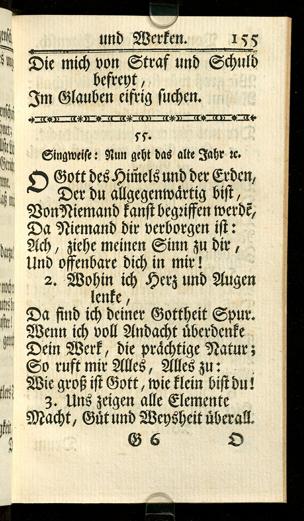 und Werken. 155
Die mich von Straf und Schuld
befreyt,
Im Glauben eifrig suchen.
55.
Singweise: Nun geht das alte Jahr ꝛc.
O Gott des Him̃els und der Erden,
Der du allgegenwärtig bist,
Von Niemand kanst begriffen werdẽ,
Da Niemand dir verborgen ist:
Ach, ziehe meinen Sinn zu dir,
Und offenbare dich in mir!
2. Wohin ich Herz und Augen
lenke,
Da find ich deiner Gottheit Spur.
Wenn ich voll Andacht überdenke
Dein Werk, die prächtige Natur;
So ruft mir Alles, Alles zu:
Wie groß ist Gott, wie klein bist du!
3. Uns zeigen alle Elemente
Macht, Güt und Weysheit überall.
G 6 O